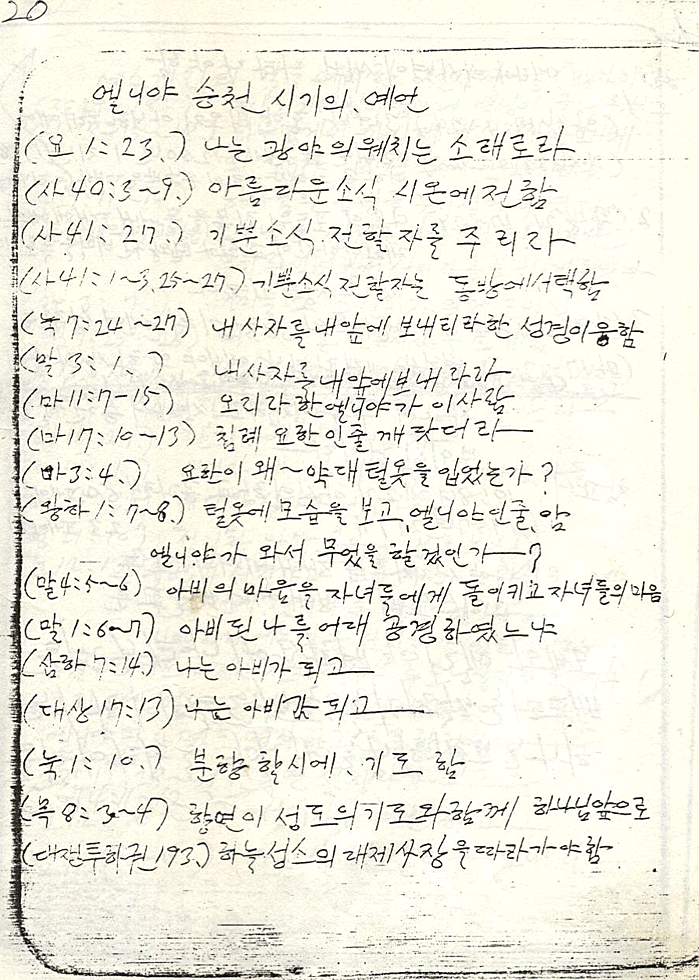 20
엘니야 승천 시기의 예언
(요 1:23.) 나는 광야의 웨치는 소래로라
(사40:3~9.) 아름다운소식 시온에전함
(사41:27.) 기쁜소식 전할자를 주리라
(사41:1~3, 25~27.) 기쁜소식전할자는 동방에서택함
(눅7:24~27) 내사자를내앞에 보내리라한 성경이응함
(말 3:1.) 내사자를내앞에보내리라
(마11:7-15) 오리라한엘니야가 이사람
(마17:10~13) 침례 요한인줄 깨닷더라—
(마3:4.) 요한이 왜~약대털옷을 입었는가?
(왕하1:7~8.) 털옷에 모습을 보고, 엘니야인줄, 암
엘니야가 와서 무엇을 할것인가—?
(말4:5~6) 아비의 마음을 자녀들에게 돌이키고자녀들의마음
(말1:6~7) 아비된 나를 어대 공경하였느냐
(삼하7:14.) 나는 아비가 되고—
(대상17:13) 나는 아비가 되고—
(눅1:10.) 분향 할시에, 기도 함
(묵8:3~4) 향연이 성도의기도와함께 하나님앞으로
(대쟁투하권193.) 하늘성소의 대제사장을따라가야함